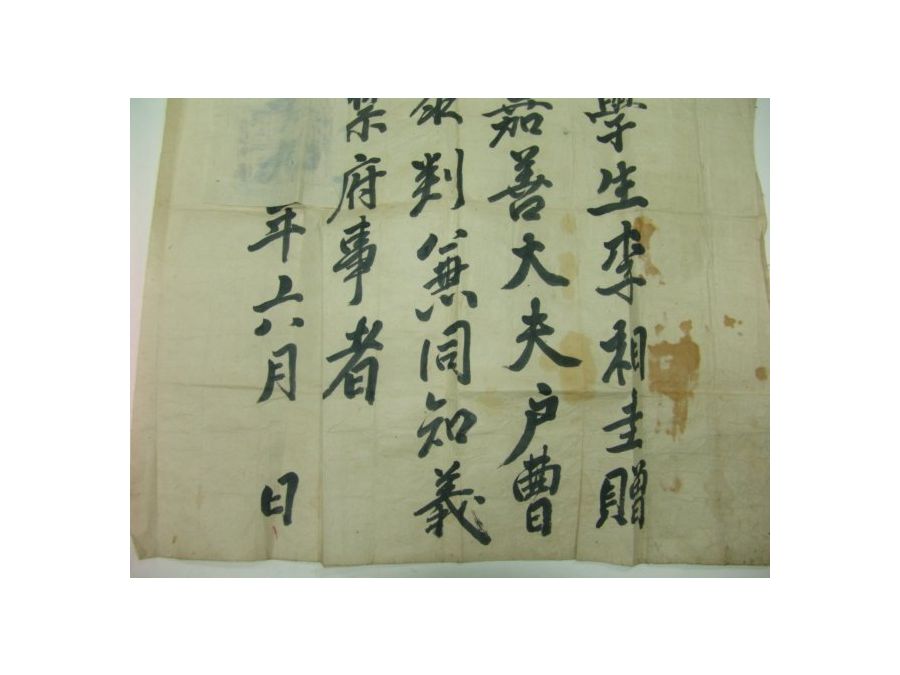 學生李祖圭贈
嘉善大夫户曹
參判兼同知義
禁府事者
年六月 日